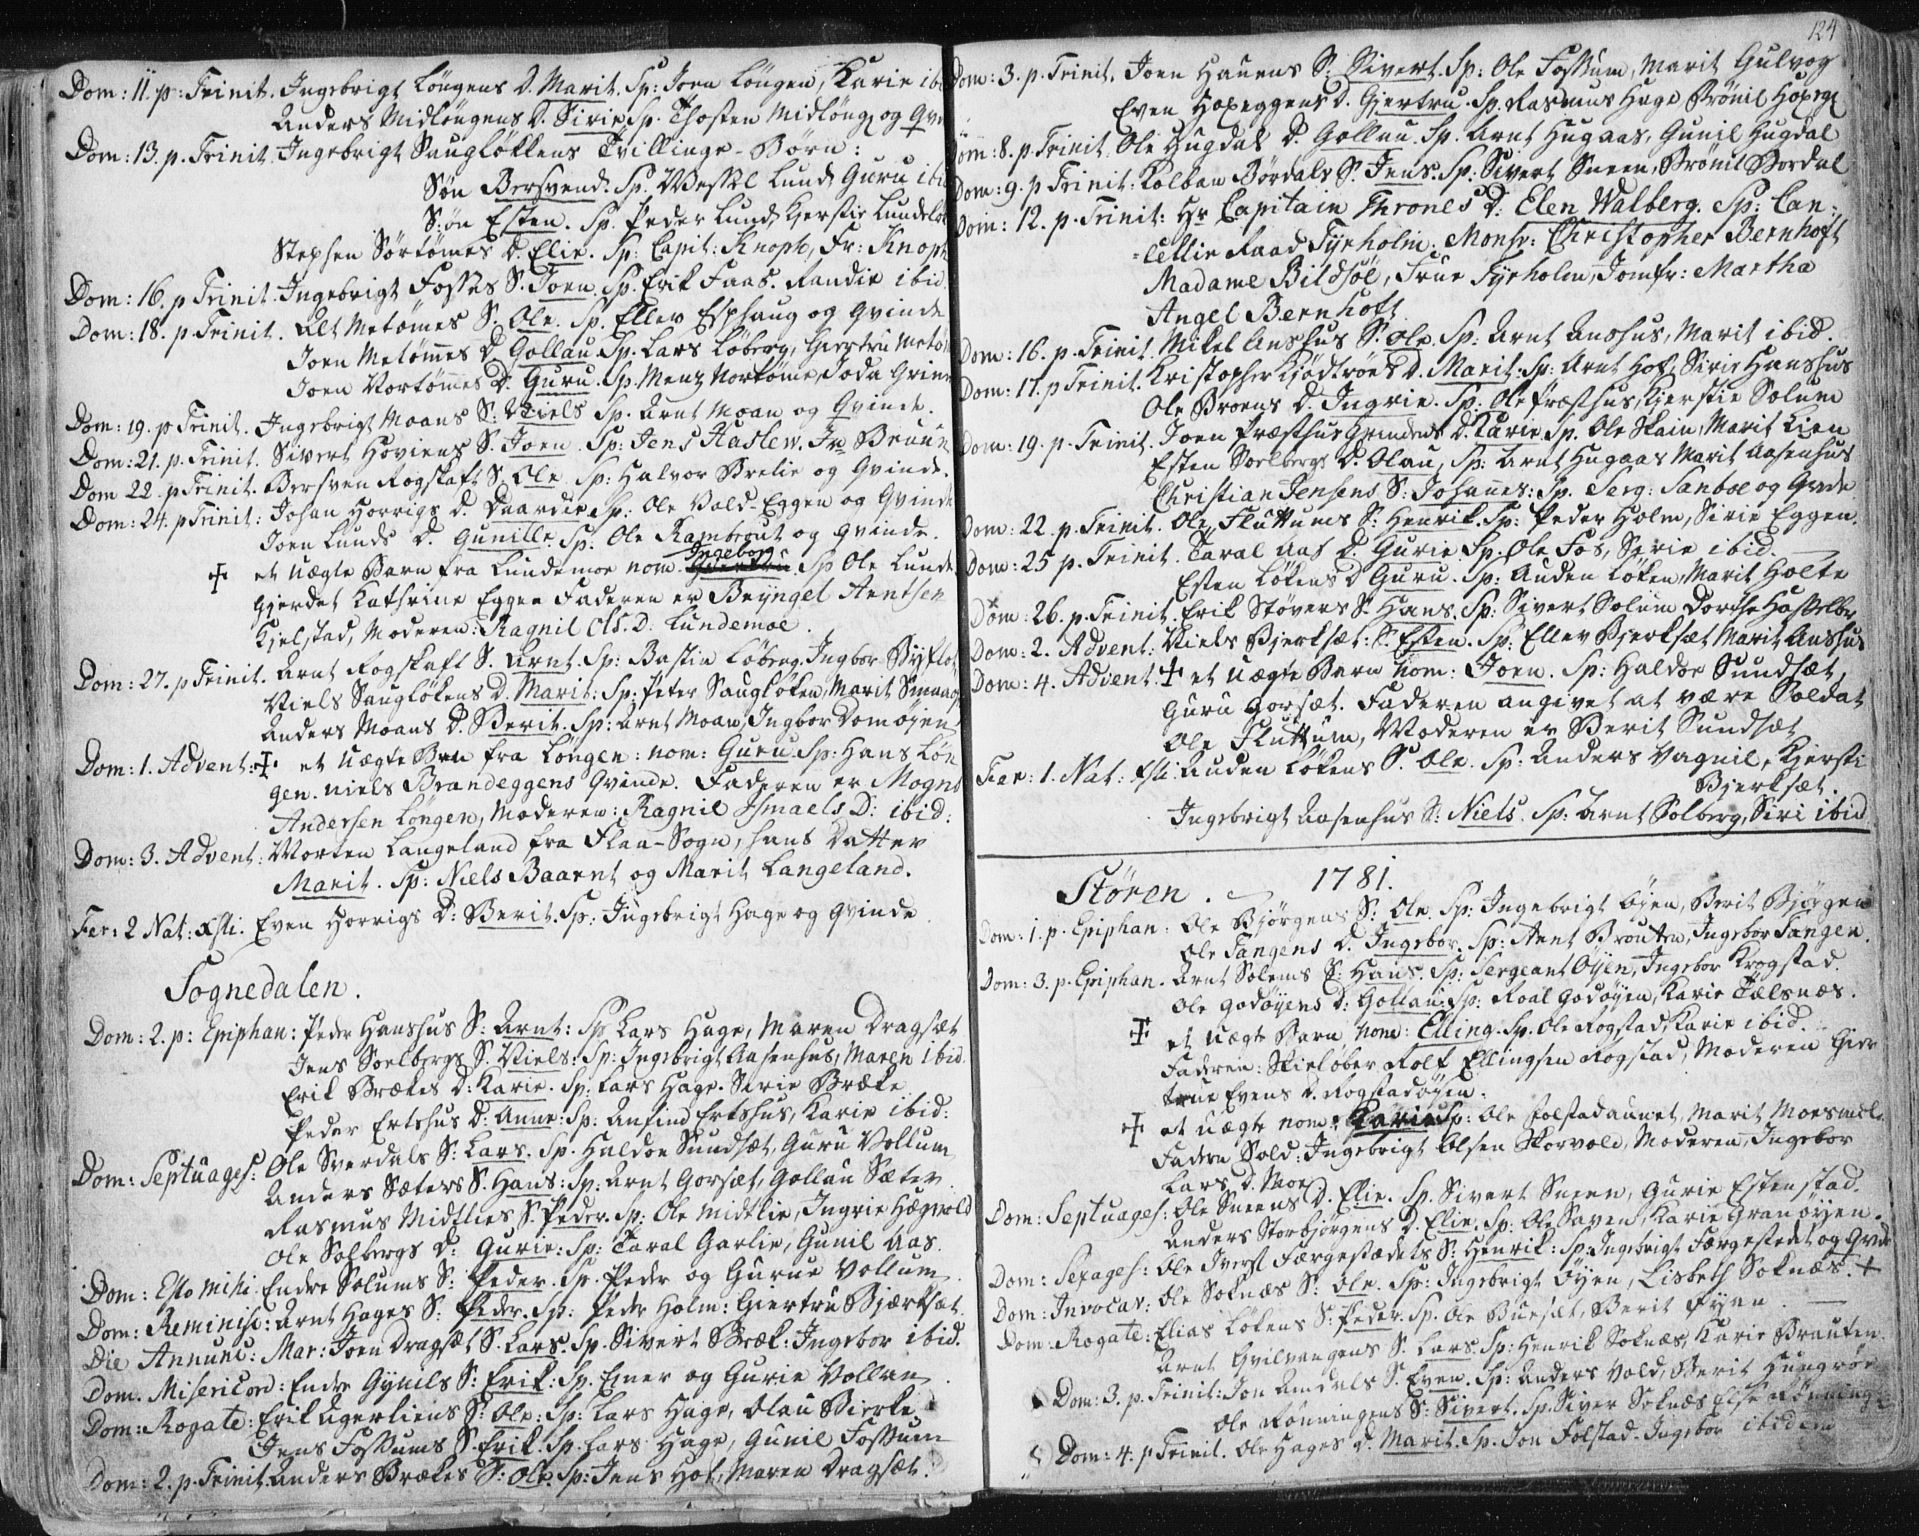 Dom: 11. p: Trinit. Ingebrigt Löngens D. Marit. Sp: Joen Löngen, Karie ibid
Anders Midlöngens D. Sirie. Sp. Thosten Midlöng og Qvin
Dom: 13. p. Trinit. Ingebrigt Saugløkkens Tvillinge-Børn:
Søn Bersvend. Sp. Wessel Lund, Guru ibid
Søn Esten. Sp. Peder Lund, Kjerstie Lundelø
Stephen Sörtömes D. Elie. Sp: Capit: Knoph, Fr: Knoph
Dom: 16. p Trinit. Ingebrigt Fosses S. Joen. Sp. Erik Faas. Randie ibid
Dom: 18. p. Trinit. Alt Metömes S. Ole. Sp. Ellev Esphaug og Qvinde
Joen Metömes D. Gollau. Sp. Lars Löberg, Giertru Metöm
Joen Vortömes D. Guru. Sp. Menz Vortöme, Joda Grin
Dom: 19. p Trinit. Ingebrigt Moans S. Niels Sp. Arnt Moan og Qvinde.
Dom: 21. p. Trinit. Sivert Hoviens S. Joen. Sp: Jens Haslew. Fr Bruun
Dom 22. p Trinit. Bersven Rogstaft S. Ole Sp: Halvor Brelie og Qvinde.
Dom: 24. p Trinit: Johan Horrigs D. Daardie Sp: Ole Vold-Eggen og Qvinde
Joen Lunds D. Gunille. Sp. Ole Rambrout og Qvinde.
Ingebor
✠ et uægte Barn fra Lundemoe nom. Giertru. Sp Ole Lunde
Gjerdet Kathrine Eggen Faderen er Brÿngel Arntsen
Kjelstad, Moderen: Ragnil Ols. D: Lundemoe.
Dom: 27. p Trinit. Arnt Rogstaft S. Arnt. Sp: Bastin Löberg, Ingbor Bÿflot
Niels Saugløkens D. Marit: Sp: Peter Saugløken, Marit Smaag
Anders Moans D. Berit. Sp: Arnt Moan, Ingbor Domöyen
Dom: 1. Advent: ✠ et uægte Brn fra Löngen: nom: Guru. Sp: Hans Lön
gen. Niels Brandeggens Qvinde. Faderen er Mogns
Andersen Löngen, Moderen: Ragnil Ismaels D: ibid:
Dom: 3. Advent: Morten Langeland fra Flaa-Sogn, hans Datter
Marit. Sp: Niels Baarnt og Marit Langeland.
Fer: 2 Nat: Xsti. Even Horrigs D: Berit. Sp: Ingebrigt Hage og Qvinde
Sognedalen.
Dom: 2. p: Epiphan: Peder Hanshus S: Arnt: Sp Lars Hage, Maren Dragsæt
Jens Soelbergs S. Niels: Sp: Ingebrigt Aasenhus, Maren ibid.
Erik Brækes D: Karie. Sp: Lars Hage. Serie Bræke
Peder Ertshus D: Anne: Sp: Anfind Ertshus, Karie ibid:
Dom: Septuages: Ole Sverdals S: Lars. Sp. Haldor Sundsæt, Guru Vollum
Anders Sæters S. Hans: Sp: Arnt Gorsæt, Gollau Sæter.
Rasmus Midtlies S. Peder. Sp: Ole Midtlie, Ingrie Hægvold
Ole Solbergs D: Gurie: Sp: Taral Garlie, Gunil Aas.
Dom: Esto mihi. Endre Solums S: Peder. Sp. Peder og Gurue Vollum
Dom: Reminisc: Arnt Hages S: Peder. Sp: Peder Holm: Giertru Bjærksæt
Die Annunc: Mar: Joen Dragsæt S. Lars. Sp. Sivert Bræk: Ingebor ibid.
Dom. Misericord: Endre Gÿnils S: Erik: Sp. Ener og Gurie Vollan
Dom: Rogate: Erik Agerliens S: Ole: Sp: Lars Hage, Olau Bierke
Jens Fossums S. Erik. Sp. Lars Hage, Gunil Fossum
Dom: 2. p. Trinit. Anders Brækes S: Ole. Sp: Jens Hof, Maren Dragsæt.
124
Dom: 3. p. Trinit. Joen Hauens S: Sivert. Sp: Ole Fossum, Marit Gulvog
Even Hoxeggens D. Gjertru. Sp. Rasmus Hage Brönil Hoxegg
Dom: 8. p Trinit. Ole Hugdal D. Gollau. Sp. Arnt Hugaas, Gunil Hugdal
Dom: 9. p Trinit: Kolban Bördals S. Jens. Sp: Sivert Sneen, Brönil Bordal
Dom: 12. p. Trinit: Hr Capitain Thrones D: Elen Walberg. Sp: Can-
cellie Raad Tyrholm. Monsr: Christopher Bernhoft
Madame Bildsöe, Frue Tyrholm, Jomfr: Martha
Angel Bernhoft.
Dom: 16. p. Trinit. Mikel Anshus S. Ole. Sp: Arnt Anshus, Marit ibid.
Dom: 17. p Trinit. Kristopher Kjödtröes D. Marit. Sp: Arnt Hof, Sirie Hanshus
Ole Broens D. Ingrie. Sp: Ole Præsthus, Kjerstie Solum
Dom: 19. p. Trinit. Joen Præsthus Grindens D. Karie Sp. Ole Skain, Marit Lien
Esten Soelbergs D. Olau, Sp: Arnt Hugaas Marit Aasenhus
Christian Jensens S: Johannes: Sp. Serg: Sanboe og Qvde
Dom: 22. p. Trinit. Ole Fluttums S: Henrik. Sp: Peder Holm, Sirie Eggen.
Dom: 25 p. Trinit. Taral Aas D. Gurie Sp. Ole Fos, Serie ibid.
Esten Lökens D Guru. Sp: Auden Löken, Marit Holte
Dom: 26. p. Trinit. Erik Stövers S. Hans. Sp: Sivert Solum Dorthe Hasselbr
Dom: 2. Advent: Niels Bjerksæt: S. Esten. Sp: Ellev Bjerksæt Marit Anshus
Dom: 4. Advent ✠ et uægte Barn Nom: Joen. Sp: Haldor Sundsæt,
Guru Gorsæt. Faderen angivet at være Soldat
Ole Fluttum, Moderen er Berit Sundsæt
Fer: 1. Nat: Xsti. Auden Lökens S. Ole. Sp: Anders Vagnil, Kjersti
Bjerksæt.
Ingebrigt Aasenhus S: Niels. Sp: Arnt Solberg, Siri ibid
Stören. 1781.
Dom: 1. p. Epiphan: Ole Bjørgens S: Ole. Sp: Ingebrigt Öyen, Berit Bjørgen
Ole Tangens D. Ingebor. Sp: Arnt Brouten, Ingebor Tangen.
Dom: 3. p. Epiphan. Arnt Solems S: Hans. Sp: Sergeant Öyen, Ingebor Krogstad.
Ole Godöyens D: Gollau: Sp: Roal Godöyen, Karie Tælsnæs.
✠ et uægte Barn, nom: Elling. Sp. Ole Rogstad Karie ibid.
Faderen: Skielöber Rolf Ellingsen Rogstad, Moderen Gier
true Evens D. Rogstadöyen.
✠ et uægte nom: Karie Sp: Ole Folstadaunet, Marit Moesmelen
Fadern Sold: Ingebrigt Olsen Skorvold, Moderen, Ingebor
Lars D. Moe
Dom: Septuages: Ole Sneens D. Elie. Sp. Sivert Sneen, Gurie Estenstad.
Anders Storbjørgens D. Elie. Sp: Ole Saven, Karie Granöyen.
Dom: Sexages: Ole Ivers Færgestædets S: Henrik: Sp: Ingebrigt Færgestedet og Qvde
Dom: Invocav: Ole Soknæs S: Ole. Sp: Ingebrigt Öyen, Lisbeth Soknæs. +
Dom: Rogate: Elias Lökens S: Peder. Sp. Ole Buesæt, Berit Fyen.
Arnt Qvilvangens S. Lars. Sp: Henrik Soknæs, Karie Brauten.
Dom: 3. p. Trinit: Jon Amdals S. Even. Sp: Anders Vold, Berit Hungröe
Ole Rönningens S: Sivert. Sp. Siver Soknæs Else Rönninge
Dom: 4. p Trinit. Ole Hages D. Marit. Sp. Jon Folstad. Ingebor ibidem